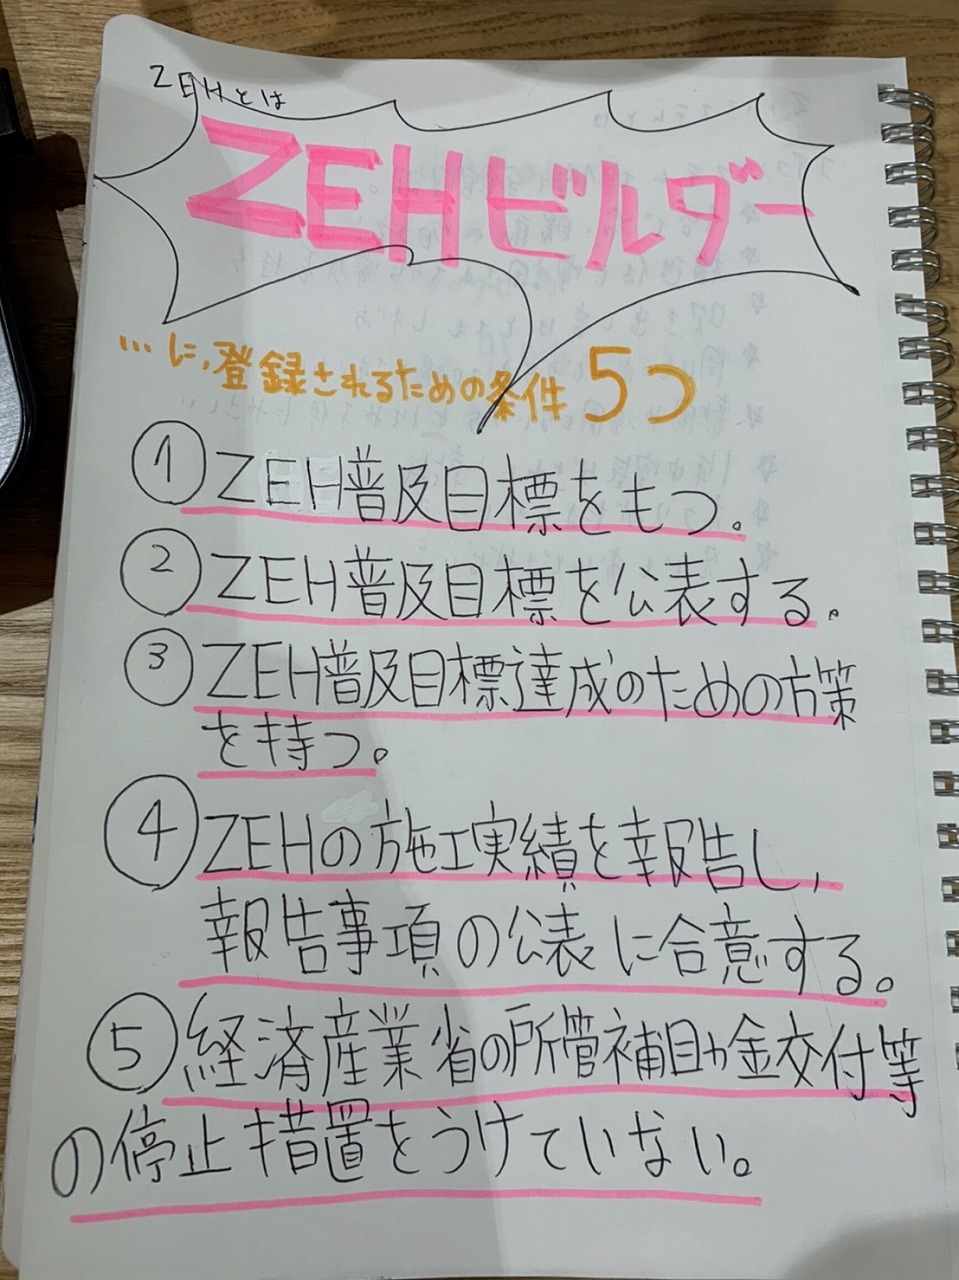 ZEHとは
ZEHビルダー
…に、登録されるための条件5つ
① ZEH普及目標をもつ。
② ZEH普及目標を公表する。
③ ZEH普及目標達成のための方策
を持つ。
④ ZEHの施工実績を報告し,
報告事項の公表に合意する。
⑤ 経済産業省の所管補助金交付等
の停止措置をうけていない。